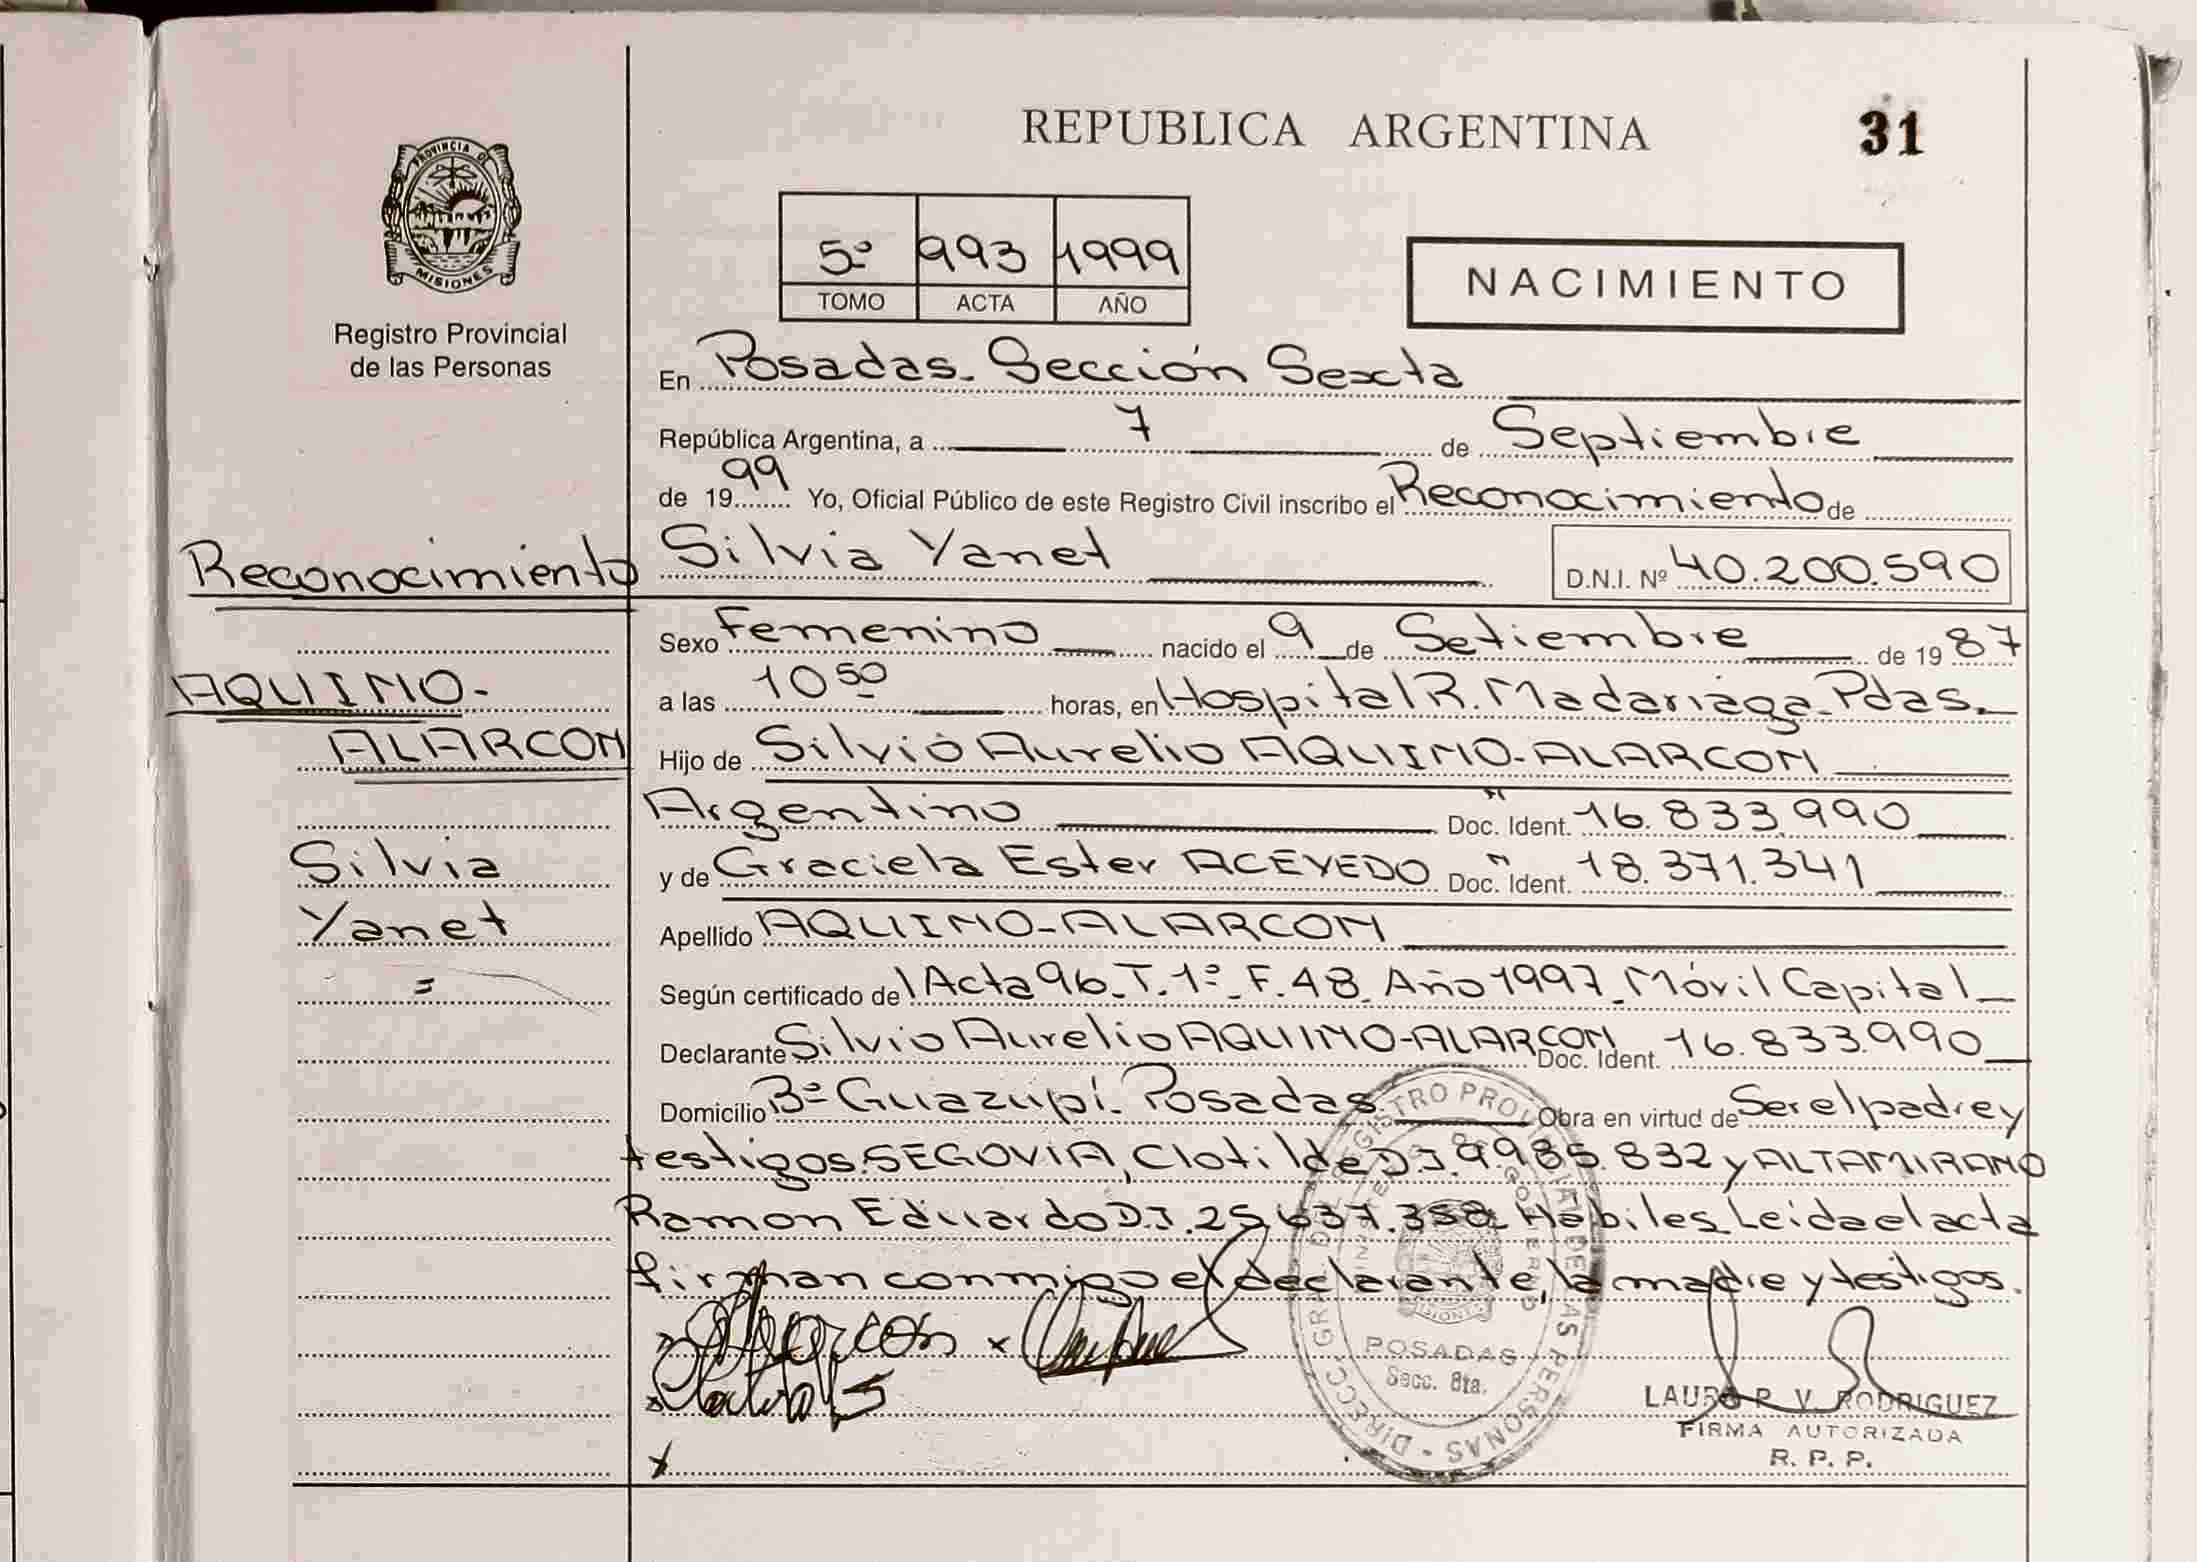 REPUBLICA ARGENTINA
31
PROVINCIA DE
MISIONES
Registro Provincial
de las Personas
5º 993 1999
TOMO ACTA AÑO
NACIMIENTO
En Posadas. Sección Sexta
República Argentina, a 7 de Septiembre
de 1999 Yo, Oficial Público de este Registro Civil inscribo el Reconocimiento de
Reconocimiento
Silvia Yanet D.N.I. Nº 40.200.590
Sexo Femenino nacido el 9 de Setiembre de 1987
AQUINO-
ALARCON
Silvia
Yanet
=
a las 10 50 horas, en Hospital R. Madariaga_Pdas_
Hijo de Silvio Aurelio AQUINO-ALARCON
Argentino " Doc. Ident. 16.833.990
y de Graciela Ester ACEVEDO " Doc. Ident. 18.371.341
Apellido AQUINO-ALARCON
Según certificado de Acta 96_T.1º_F.48_Año 1997_Móvil Capital_
Declarante Silvio Aurelio AQUINO-ALARCON Doc. Ident. 16.833.990
Domicilio Bº Guazupí. Posadas. Obra en virtud de Ser el padre y
testigos. SEGOVIA, Clotilde D.I. 9.985.832 y ALTAMIRANO
Ramon Eduardo D.I. 25.637.358_Hábiles_Leida el acta
firman conmigo el declarante, la madre y testigos.
Alarcon x
x
x
DIRECC. GRAL. DEL REGISTRO PROVINCIAL DE LAS PERSONAS
MINISTERIO DE GOBIERNO
MISIONES
POSADAS
Secc. 6ta.
R. V. RODRIGUEZ
FIRMA AUTORIZADA
R. P. P.